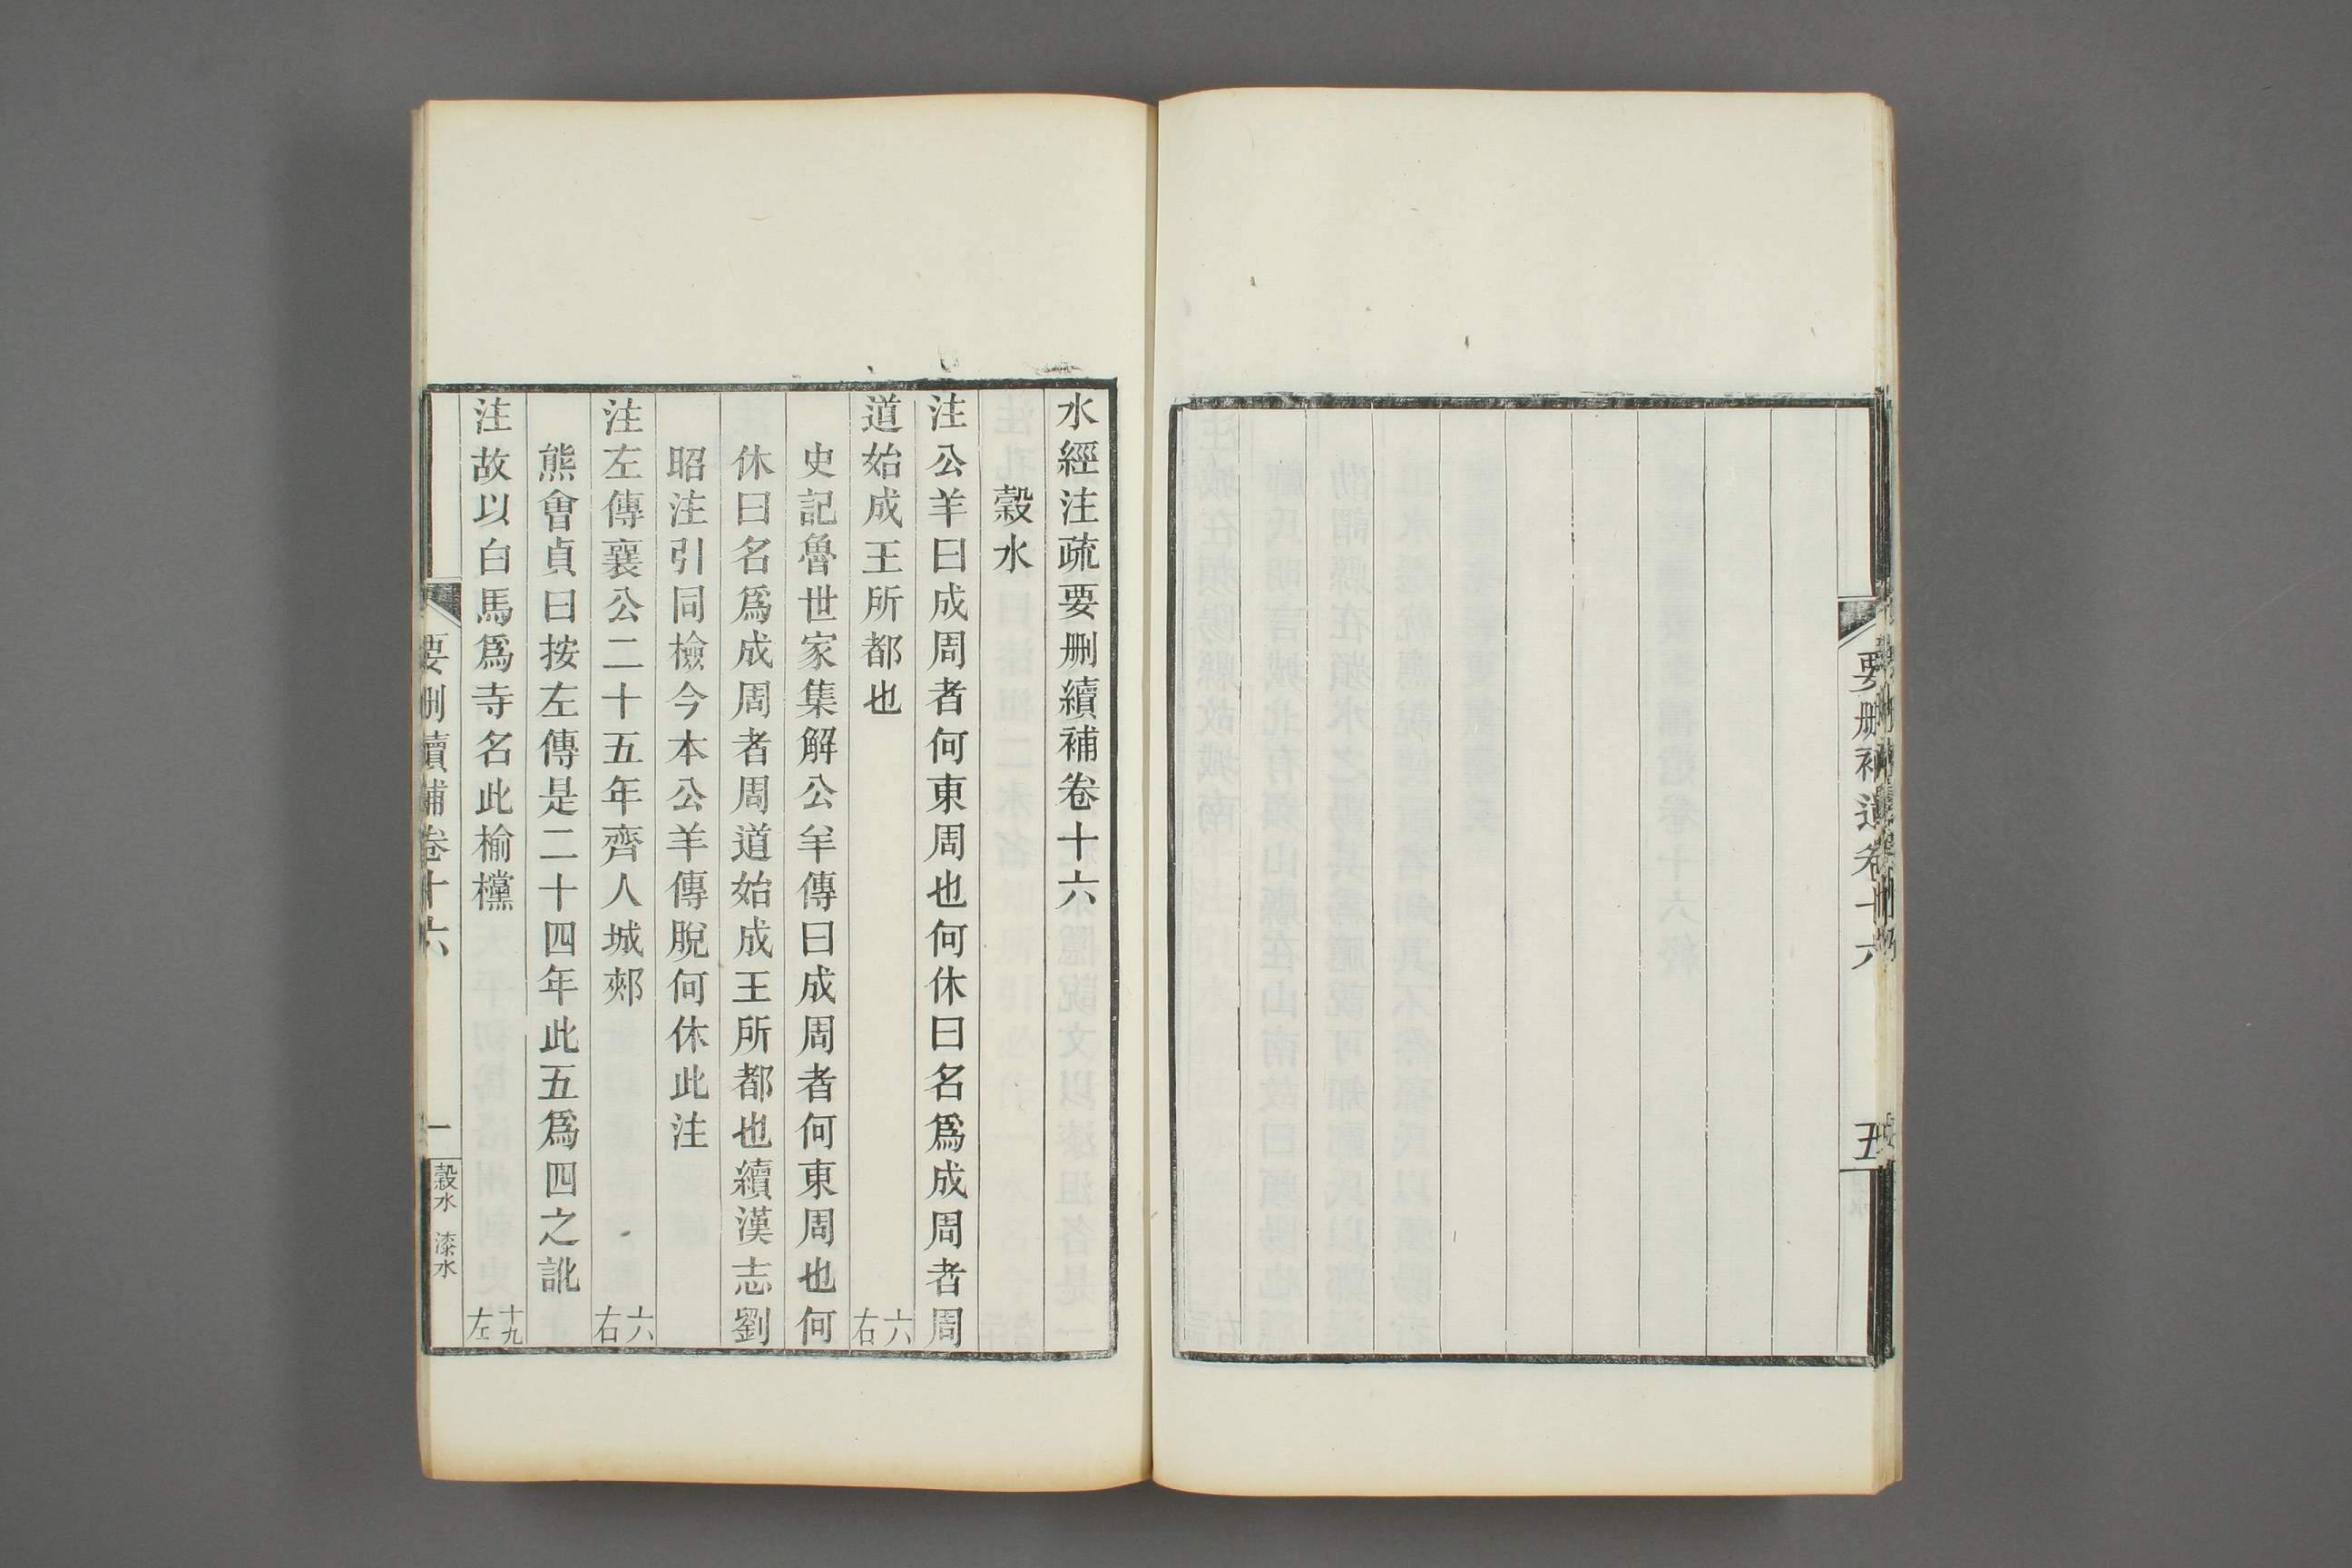 要刪補遺卷十六
五
水經注疏要刪續補卷十六
穀水
注公羊曰成周者何東周也何休曰名爲成周者周
道始成王所都也 六右
史記魯世家集解公羊傳曰成周者何東周也何
休曰名爲成周者周道始成王所都也續漢志劉
昭注引同檢今本公羊傳脫何休此注
注左傳襄公二十五年齊人城郟 六右
熊會貞曰按左傳是二十四年此五爲四之訛
注故以白馬爲寺名此榆欓 十九左
要刪續補卷十六
一
穀水 漆水